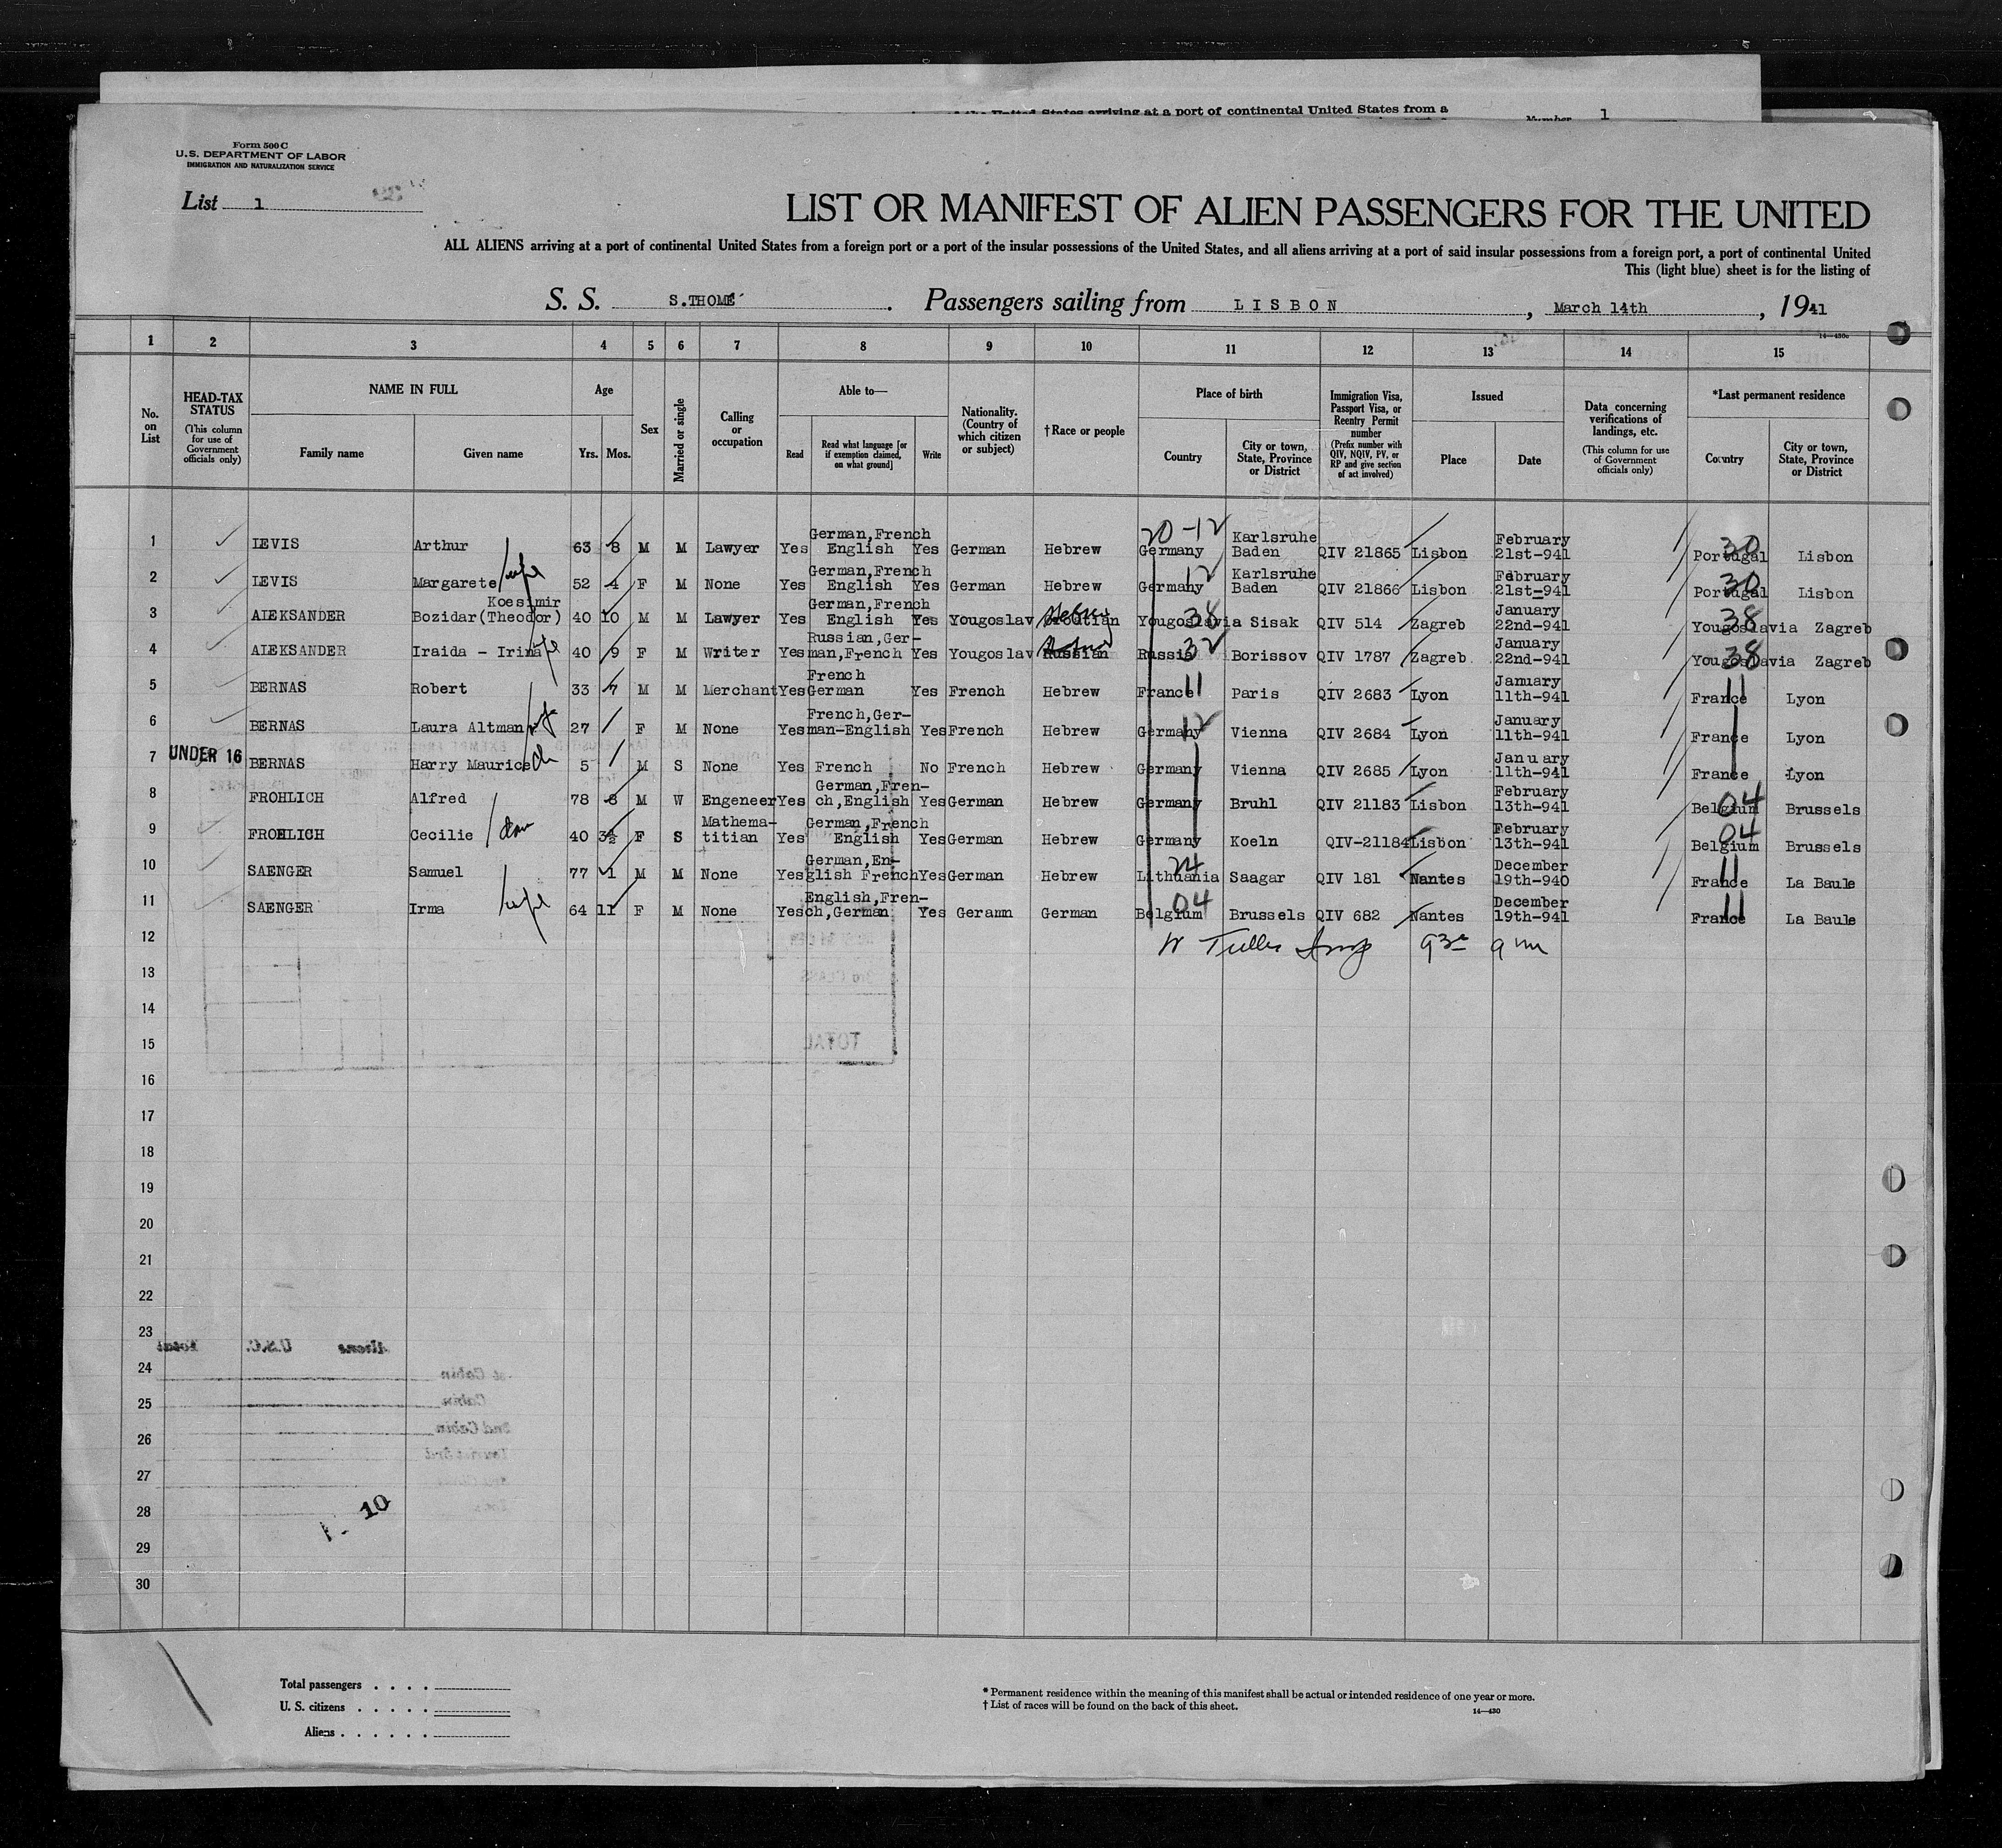 the United States arriving at a port of continental United States from a
Number 1
Form 500 C
U.S. DEPARTMENT OF LABOR
IMMIGRATION AND NATURALIZATION SERVICE
List 1
LIST OR MANIFEST OF ALIEN PASSENGERS FOR THE UNITED
ALL ALIENS arriving at a port of continental United States from a foreign port or a port of the insular possessions of the United States, and all aliens arriving at a port of said insular possessions from a foreign port, a port of continental United
This (light blue) sheet is for the listing of
S. S. S.THOMÉ. Passengers sailing from LISBON, March 14th, 1941
14—430c
1 2 3 4 5 6 7 8 9 10 11 12 13 14 15
No. on List
HEAD-TAX STATUS
(This column for use of Government officials only)
NAME IN FULL
Family name Given name
Age
Yrs. Mos.
Sex
Married or single
Calling or occupation
Able to—
Read
Read what language [or if exemption claimed, on what ground]
Write
Nationality. (Country of which citizen or subject)
†Race or people
Place of birth
Country
City or town, State, Province or District
Immigration Visa, Passport Visa, or Reentry Permit number
(Prefix number with QIV, NQIV, PV, or RP and give section of act involved)
Issued
Place Date
Data concerning verifications of landings, etc.
(This column for use of Government officials only)
*Last permanent residence
Country
City or town, State, Province or District
1 LEVIS Arthur 63 8 M M Lawyer Yes German,French English Yes German Hebrew 20-12 Germany Karlsruhe Baden QIV 21865 Lisbon February 21st-941 30 Portugal Lisbon
2 LEVIS Margarete wife 52 4 F M None Yes German,French English Yes German Hebrew 12 Germany Karlsruhe Baden QIV 21866 Lisbon February 21st-941 30 Portugal Lisbon
3 ALEKSANDER Bozidar(Theodor) Koesimir 40 10 M M Lawyer Yes German,French English Yes Yougoslav Hebrew Croatian 38 Yougoslavia Sisak QIV 514 Zagreb January 22nd-941 38 Yougoslavia Zagreb
4 ALEKSANDER Iraida - Irina wife 40 9 F M Writer Yes Russian,German,French Yes Yougoslav Russian 32 Russia Borissov QIV 1787 Zagreb January 22nd-941 38 Yougoslavia Zagreb
5 BERNAS Robert 33 7 M M Merchant Yes French German Yes French Hebrew 11 France Paris QIV 2683 Lyon January 11th-941 11 France Lyon
6 BERNAS Laura Altman wife 27 F M None Yes French,German-English Yes French Hebrew 12 Germany Vienna QIV 2684 Lyon January 11th-941 France Lyon
7 UNDER 16 BERNAS Harry Maurice ch 5 M S None Yes French No French Hebrew Germany Vienna QIV 2685 Lyon January 11th-941 France Lyon
8 FROHLICH Alfred 78 8 M W Engeneer Yes German,French,English Yes German Hebrew Germany Bruhl QIV 21183 Lisbon February 13th-941 04 Belgium Brussels
9 FROHLICH Cecilie dau 40 3½ F S Mathematitian Yes German,French English Yes German Hebrew Germany Koeln QIV-21184 Lisbon February 13th-941 04 Belgium Brussels
10 SAENGER Samuel 77 1 M M None Yes German,English French Yes German Hebrew 24 Lithuania Saagar QIV 181 Nantes December 19th-940 11 France La Baule
11 SAENGER Irma wife 64 11 F M None Yes English,French,German Yes Geramn German 04 Belgium Brussels QIV 682 Nantes December 19th-941 11 France La Baule
12
13
14
15
16
17
18
19
20
21
22
23
24
25
26
27
28
29
30
TOTAL
Aliens U.S.C. Total
Cabin
2nd Cabin
10
Total passengers
U. S. citizens
Aliens
* Permanent residence within the meaning of this manifest shall be actual or intended residence of one year or more.
† List of races will be found on the back of this sheet.
14—430